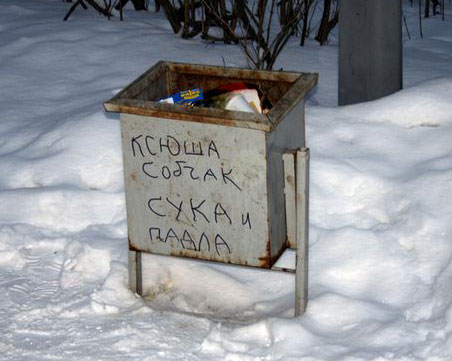 КСЮША
СОБЧАК
СУКА И
ПАДЛА